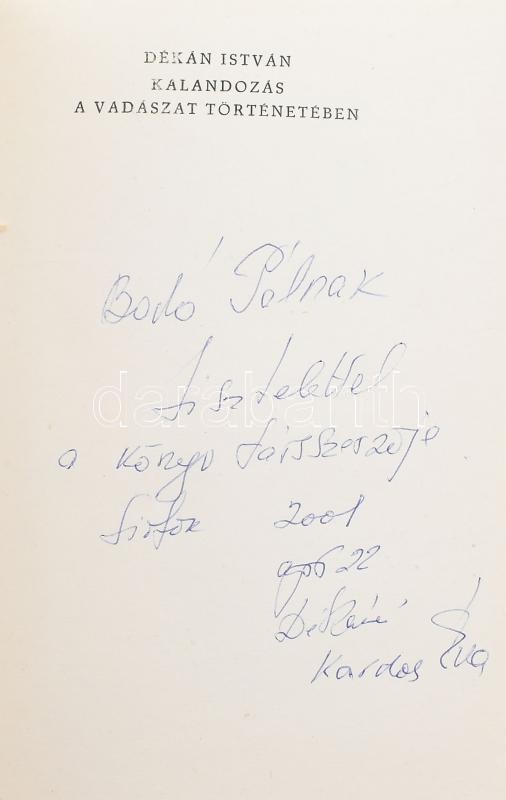 DÉKÁN ISTVÁN
KALANDOZÁS
A VADÁSZAT TÖRTÉNETÉBEN
Bodó Pálnak
tisztelettel
darabanth
a könyv társszerzője
Siófok 2001
ápr 22
Dékáné
Kardos Éva